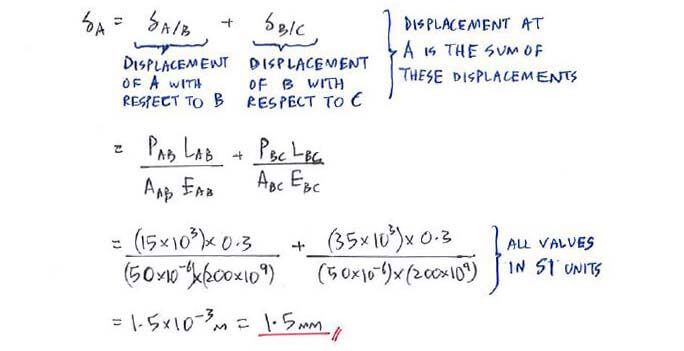 δA = δA/B + δB/C
DISPLACEMENT OF A WITH RESPECT TO B
DISPLACEMENT OF B WITH RESPECT TO C
DISPLACEMENT AT
A IS THE SUM OF
THESE DISPLACEMENTS
= PAB LAB / AAB EAB + PBC LBC / ABC EBC
= (15×10³)×0.3 / (50×10⁻⁶)×(200×10⁹) + (35×10³)×0.3 / (50×10⁻⁶)×(200×10⁹)
ALL VALUES
IN SI UNITS
= 1.5×10⁻³ m = 1.5mm